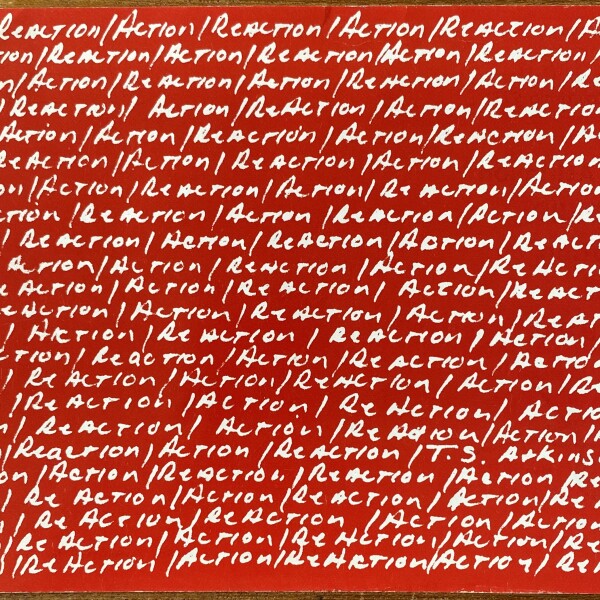 REACTION/ACTION/REACTION/ACTION/REACTION/A
ION/REACTION/ACTION/REACTION/ACTION/REACTION/
N/ACTION/REACTION/ACTION/REACTION/ACTION/RE
/REACTION/ ACTION/REACTION/ACTION/REACTION
ACTION/ACTION/REACTION/ACTION/REACTION/AC
REACTION/ACTION/REACTION/ACTION/REACTION
ON/ACTION/REACTION/ACTION/REACTION/ACTION
CTION/REACTION/ACTION/REACTION/ACTION/RE
/REACTION/ACTION/REACTION/ACTION/REACTI
ACTION/ACTION/REACTION/ACTION/REACTI
EACTION/ACTION/REACTION/ACTION/REACT
EACTION/ACTION/REACTION/ACTION/REAT
/ACTION/REACTION/REACTION/ACTION
CTION/REACTION/ACTION/REACTION/ACTIO
/REACTION/ACTION/REACTION/ACTION/RE
/REACTION/ACTION/REACTION/ACTIO
N/REACTION/ACTION/REACTION/ACTION/R
/REACTION/ACTION/REACTION/T.S. ATKINS
ON/ACTION/REACTION/REACTION/ACTION/RE
/REACTION/ACTION/REACTION/ACTION/RE
/REACTION/REACTION/ACTION/ACTION
/REACTION/ACTION/REACTION/ACTION/RE
/REACTION/ACTION/REACTION/ACTION/RE